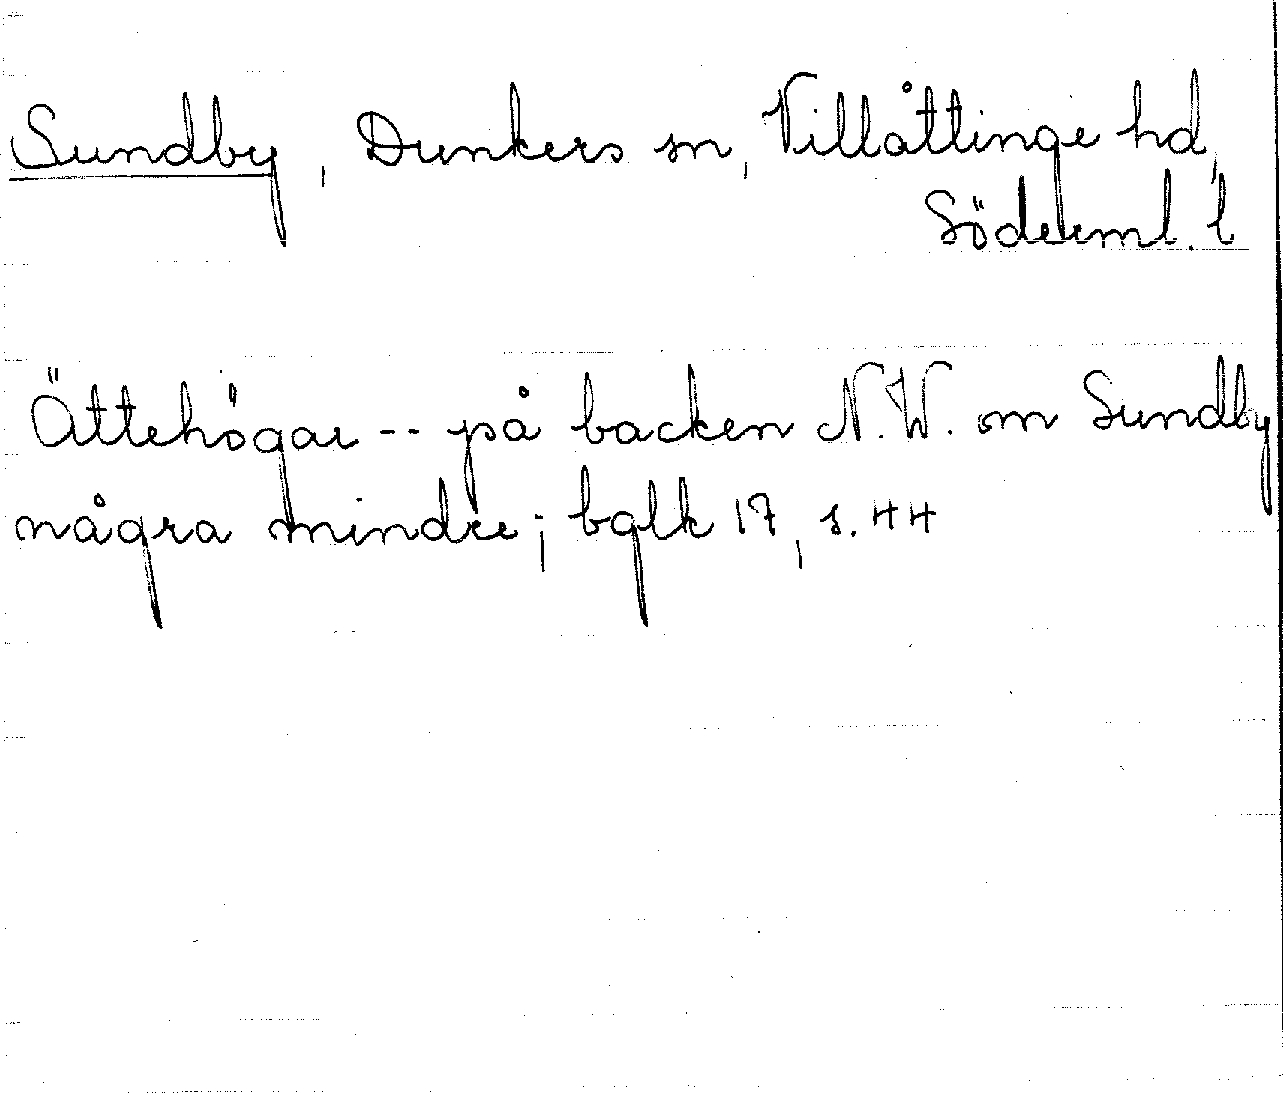 Sundby, Dunkers sn, Villåttinge hd,
Söderml. l
Ättehögar -- på backen N.W. om Sundby
några mindre; bglk 17, s. 44